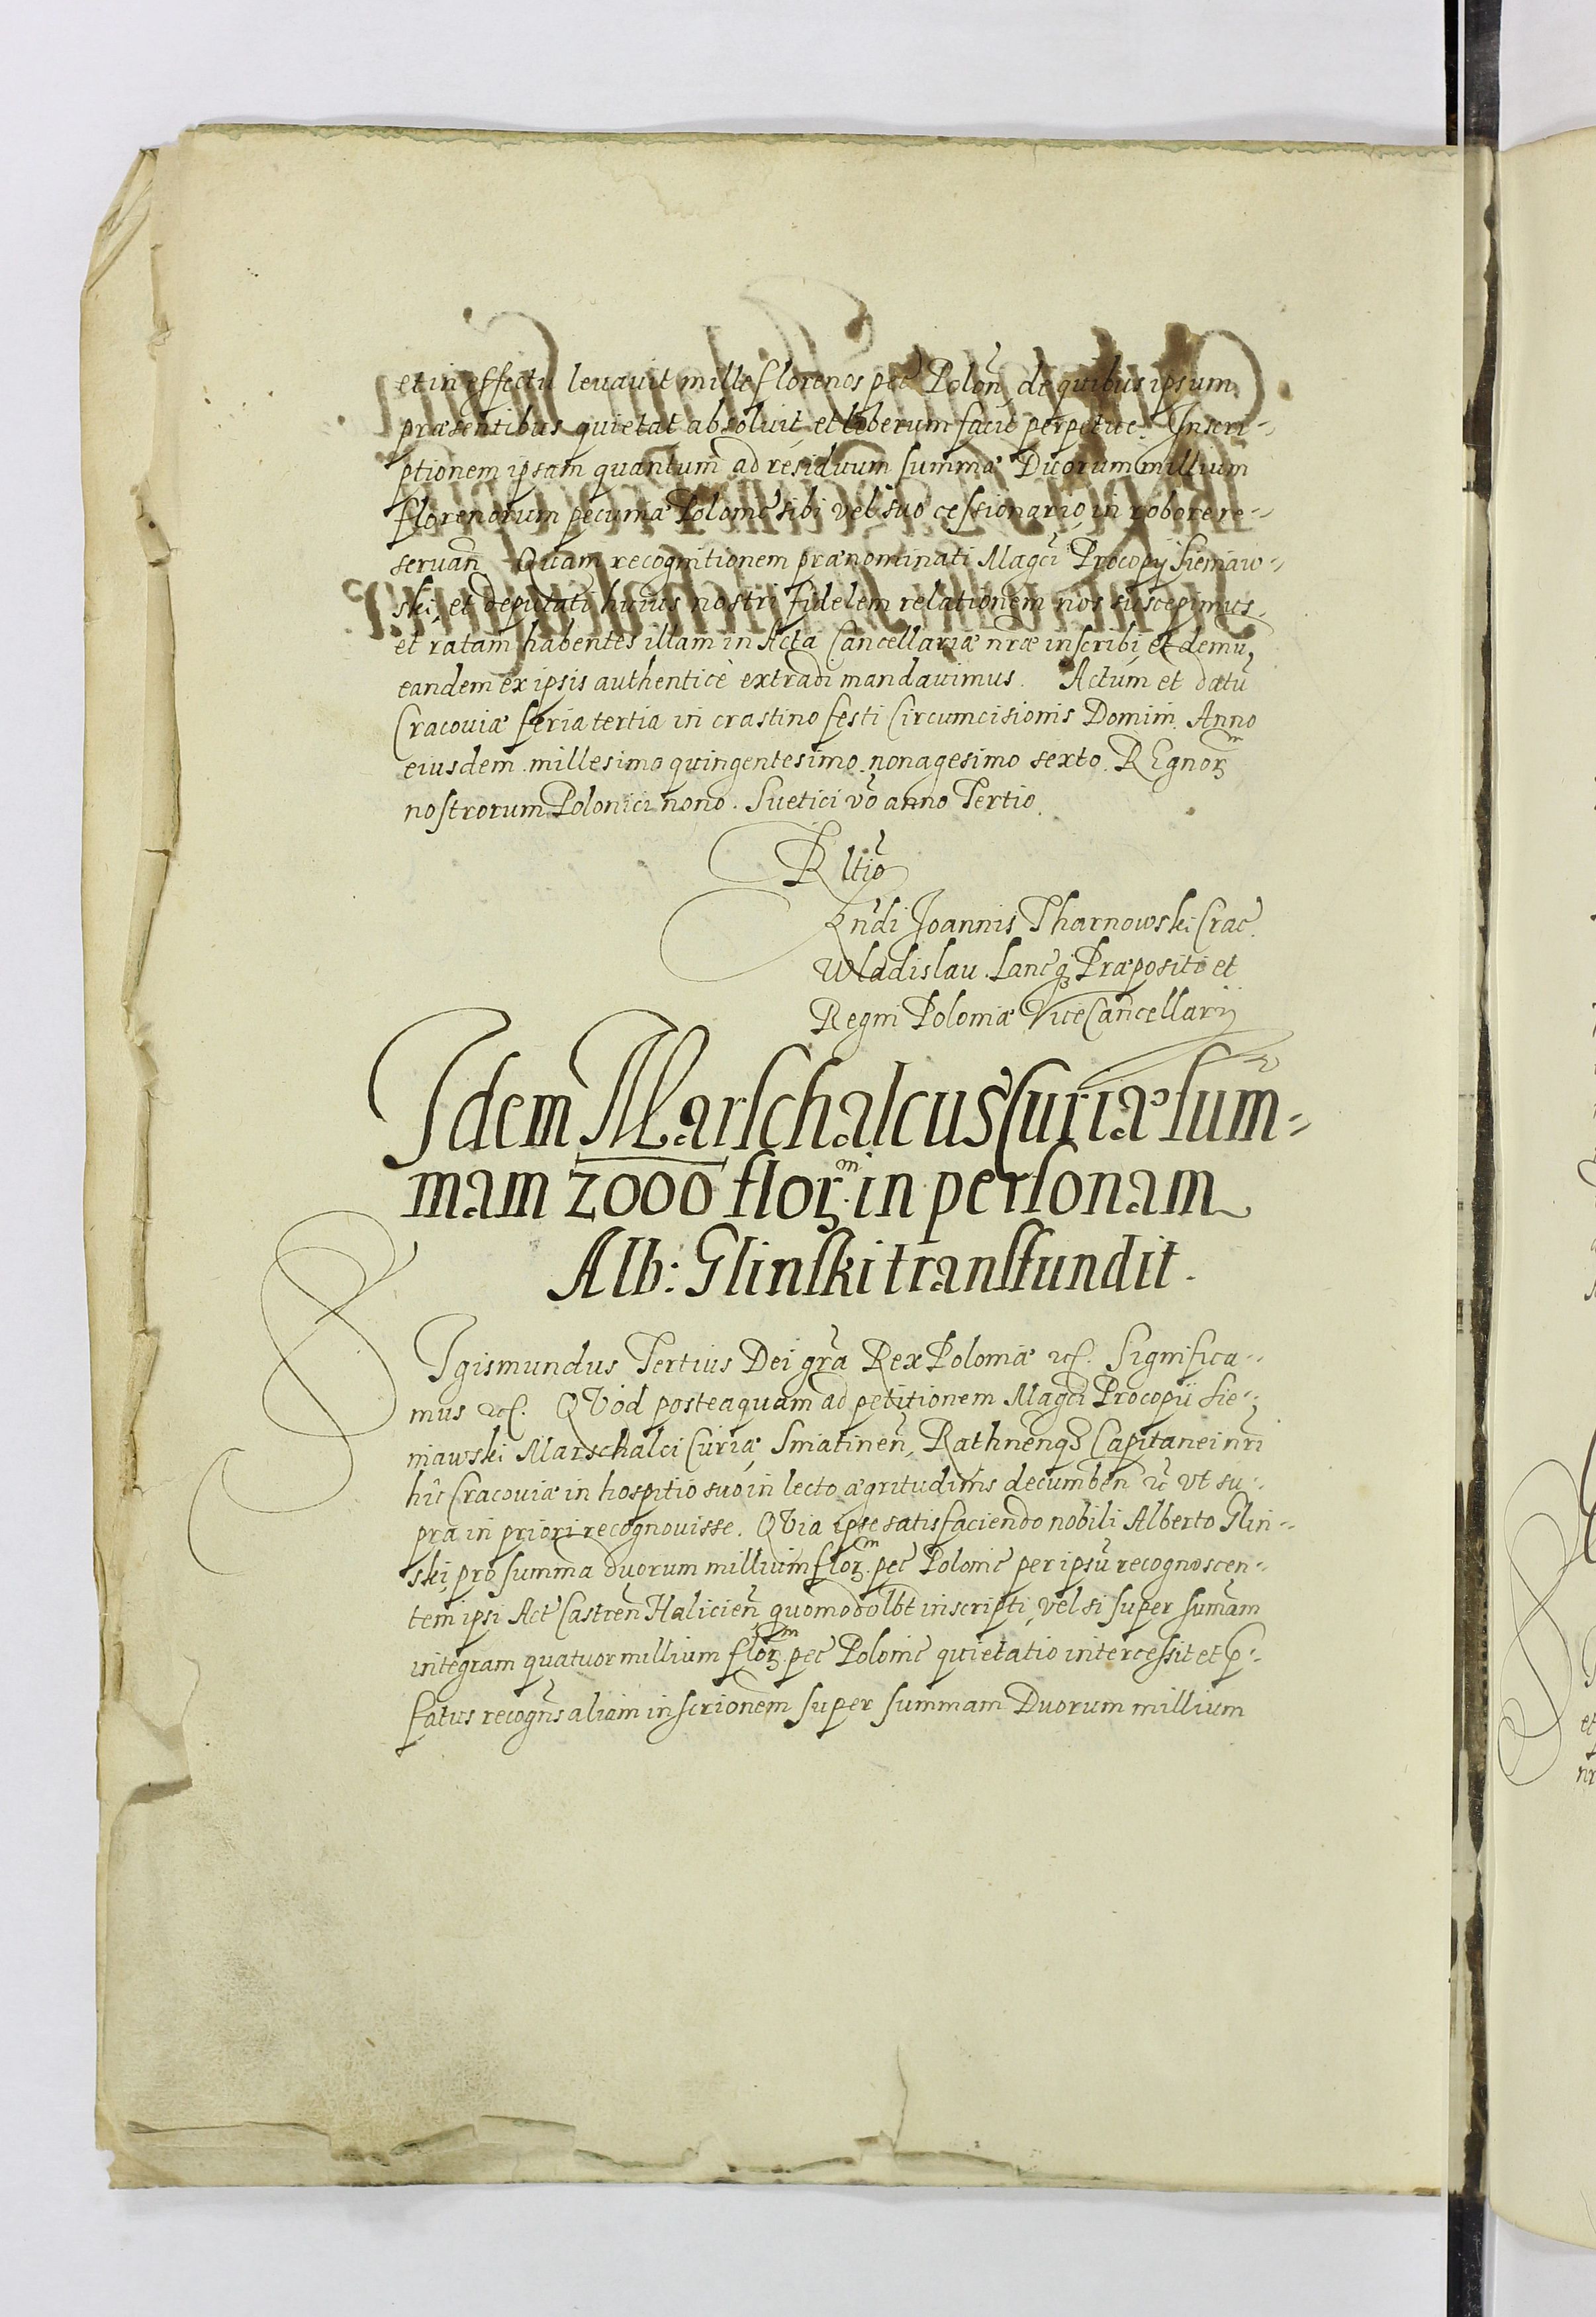 et in effectu leuauit mille florenos pec Polon̄, de quibus ipsum
præsentibus quietat absoluit, et liberum facit perpetue. Inscri-
ptionem ipsam quantum ad residuum summæ Duorum millium
florenorum pecuniæ Polonic̄ sibi vel suo cessionario, in robore re-
seruan̄ Quam recognitionem prænominati Magci Procopij Sieniaw-
ski, et deputati huius nostri fidelem relationem nos suscepimus,
et ratam habentes illam in Acta Cancellariæ nræ inscribi, et demū
eandem ex ipsis authenticè extradi mandauimus. Actum et datū
Cracouiæ feria tertia in crastino festi Circumcisionis Domini Anno
eiusdem millesimo quingentesimo nonagesimo sexto. REgnorꝝ
nostrorum Polonici nono. Suetici vō anno Tertio.
Rltiō
Rn̄di Joannis Tharnowski Crac̄.
Wladislau. Lancq Præpositi et
Regni Poloniæ ViceCancellarij
Idem Marschalcus Curiæ sum-
mam 2000 florꝝ in personam
Alb: Glinski transfundit.
SIgismundus Tertius Dei gr̄a Rex Poloniæ ꝛc. Significa-
mus ꝛc. QVod posteaquam ad petitionem Magci Procopii Sie-
niawski Marschalci Curiæ, Sniatinen̄, Rathnenq3 Capitanei nr̄i
hic Cracouiæ in hospitio suo in lecto ægritudinis decumben̄ ꝛc vt su-
pra in priori recognouisse. QVia ipse satisfaciendo nobili Alberto Glin-
ski, pro summa duorum millium florꝝ pec̄ Polonic̄ per ipsū recognoscen-
tem ipsi Act̄ Castren̄ Halicien̄ quomodolb̄t inscripti, vel si super sum̄am
integram quatuor millium florꝝ pec̄ Polonic̄ quietatio intercessit et p-
fatus recogn̄s aliam inscrionem super summam Duorum millium